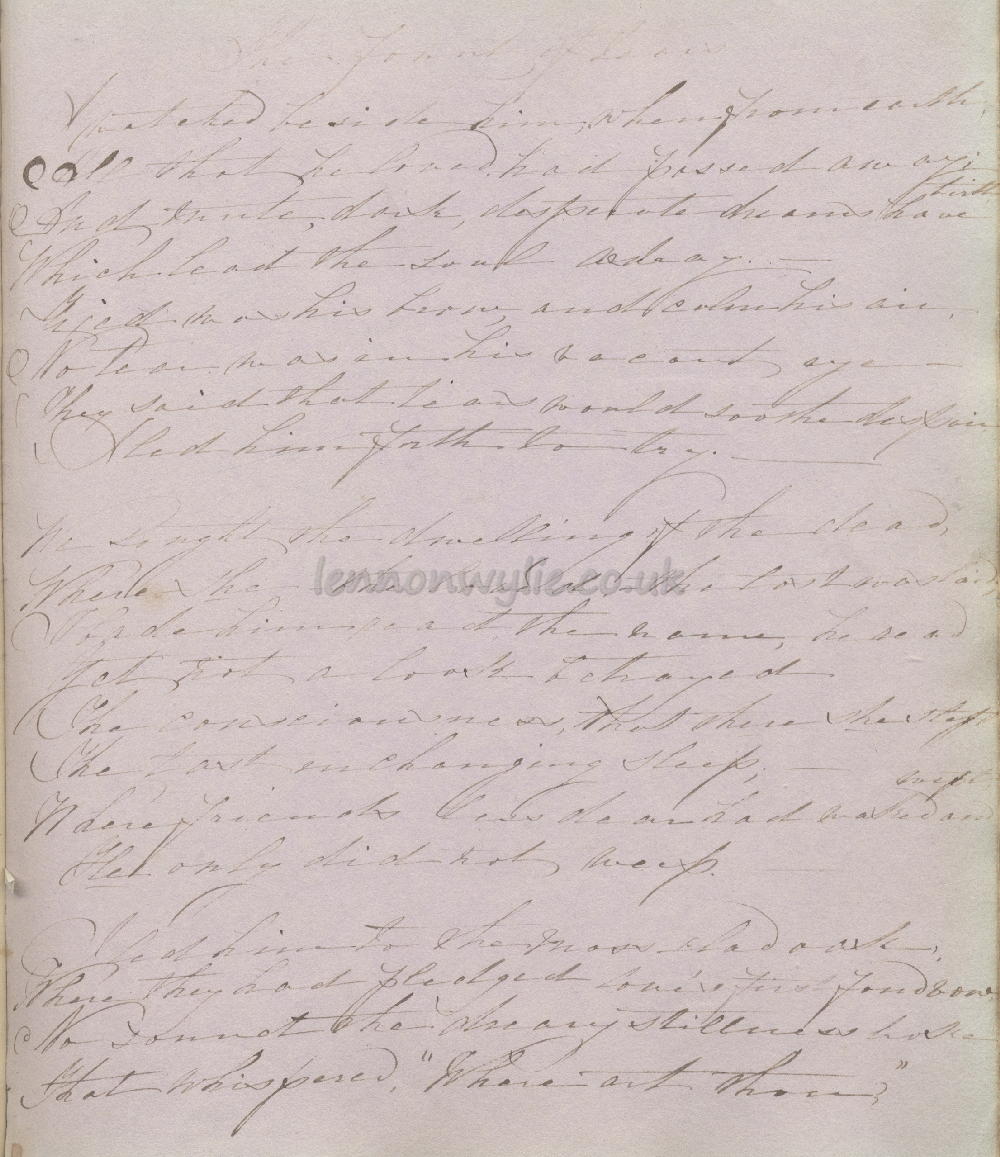 The Fount of Tears
I watched beside him, when from earth,
All that he loved had passed away;
And mute, dark, desperate dreams have birth
Which lead the soul astray. —
Fixed was his brow, and calm his air,
No tear was in his vacant eye —
They said that tears would soothe despair
I led him forth to try. —
We sought the dwelling of the dead,
Where the the lost was laid
I bade him read the name, he read
Yet not a look betrayed
The consciousness, that there she slept
The last unchanging sleep; —
Where friends less dear had waked and wept
He only did not weep.
I led him to the moss clad oak,
Where they had pledged love's first fond vow
No sound the dreary stillness broke
That whispered, "Where art thou,"
lennonwylie.co.uk